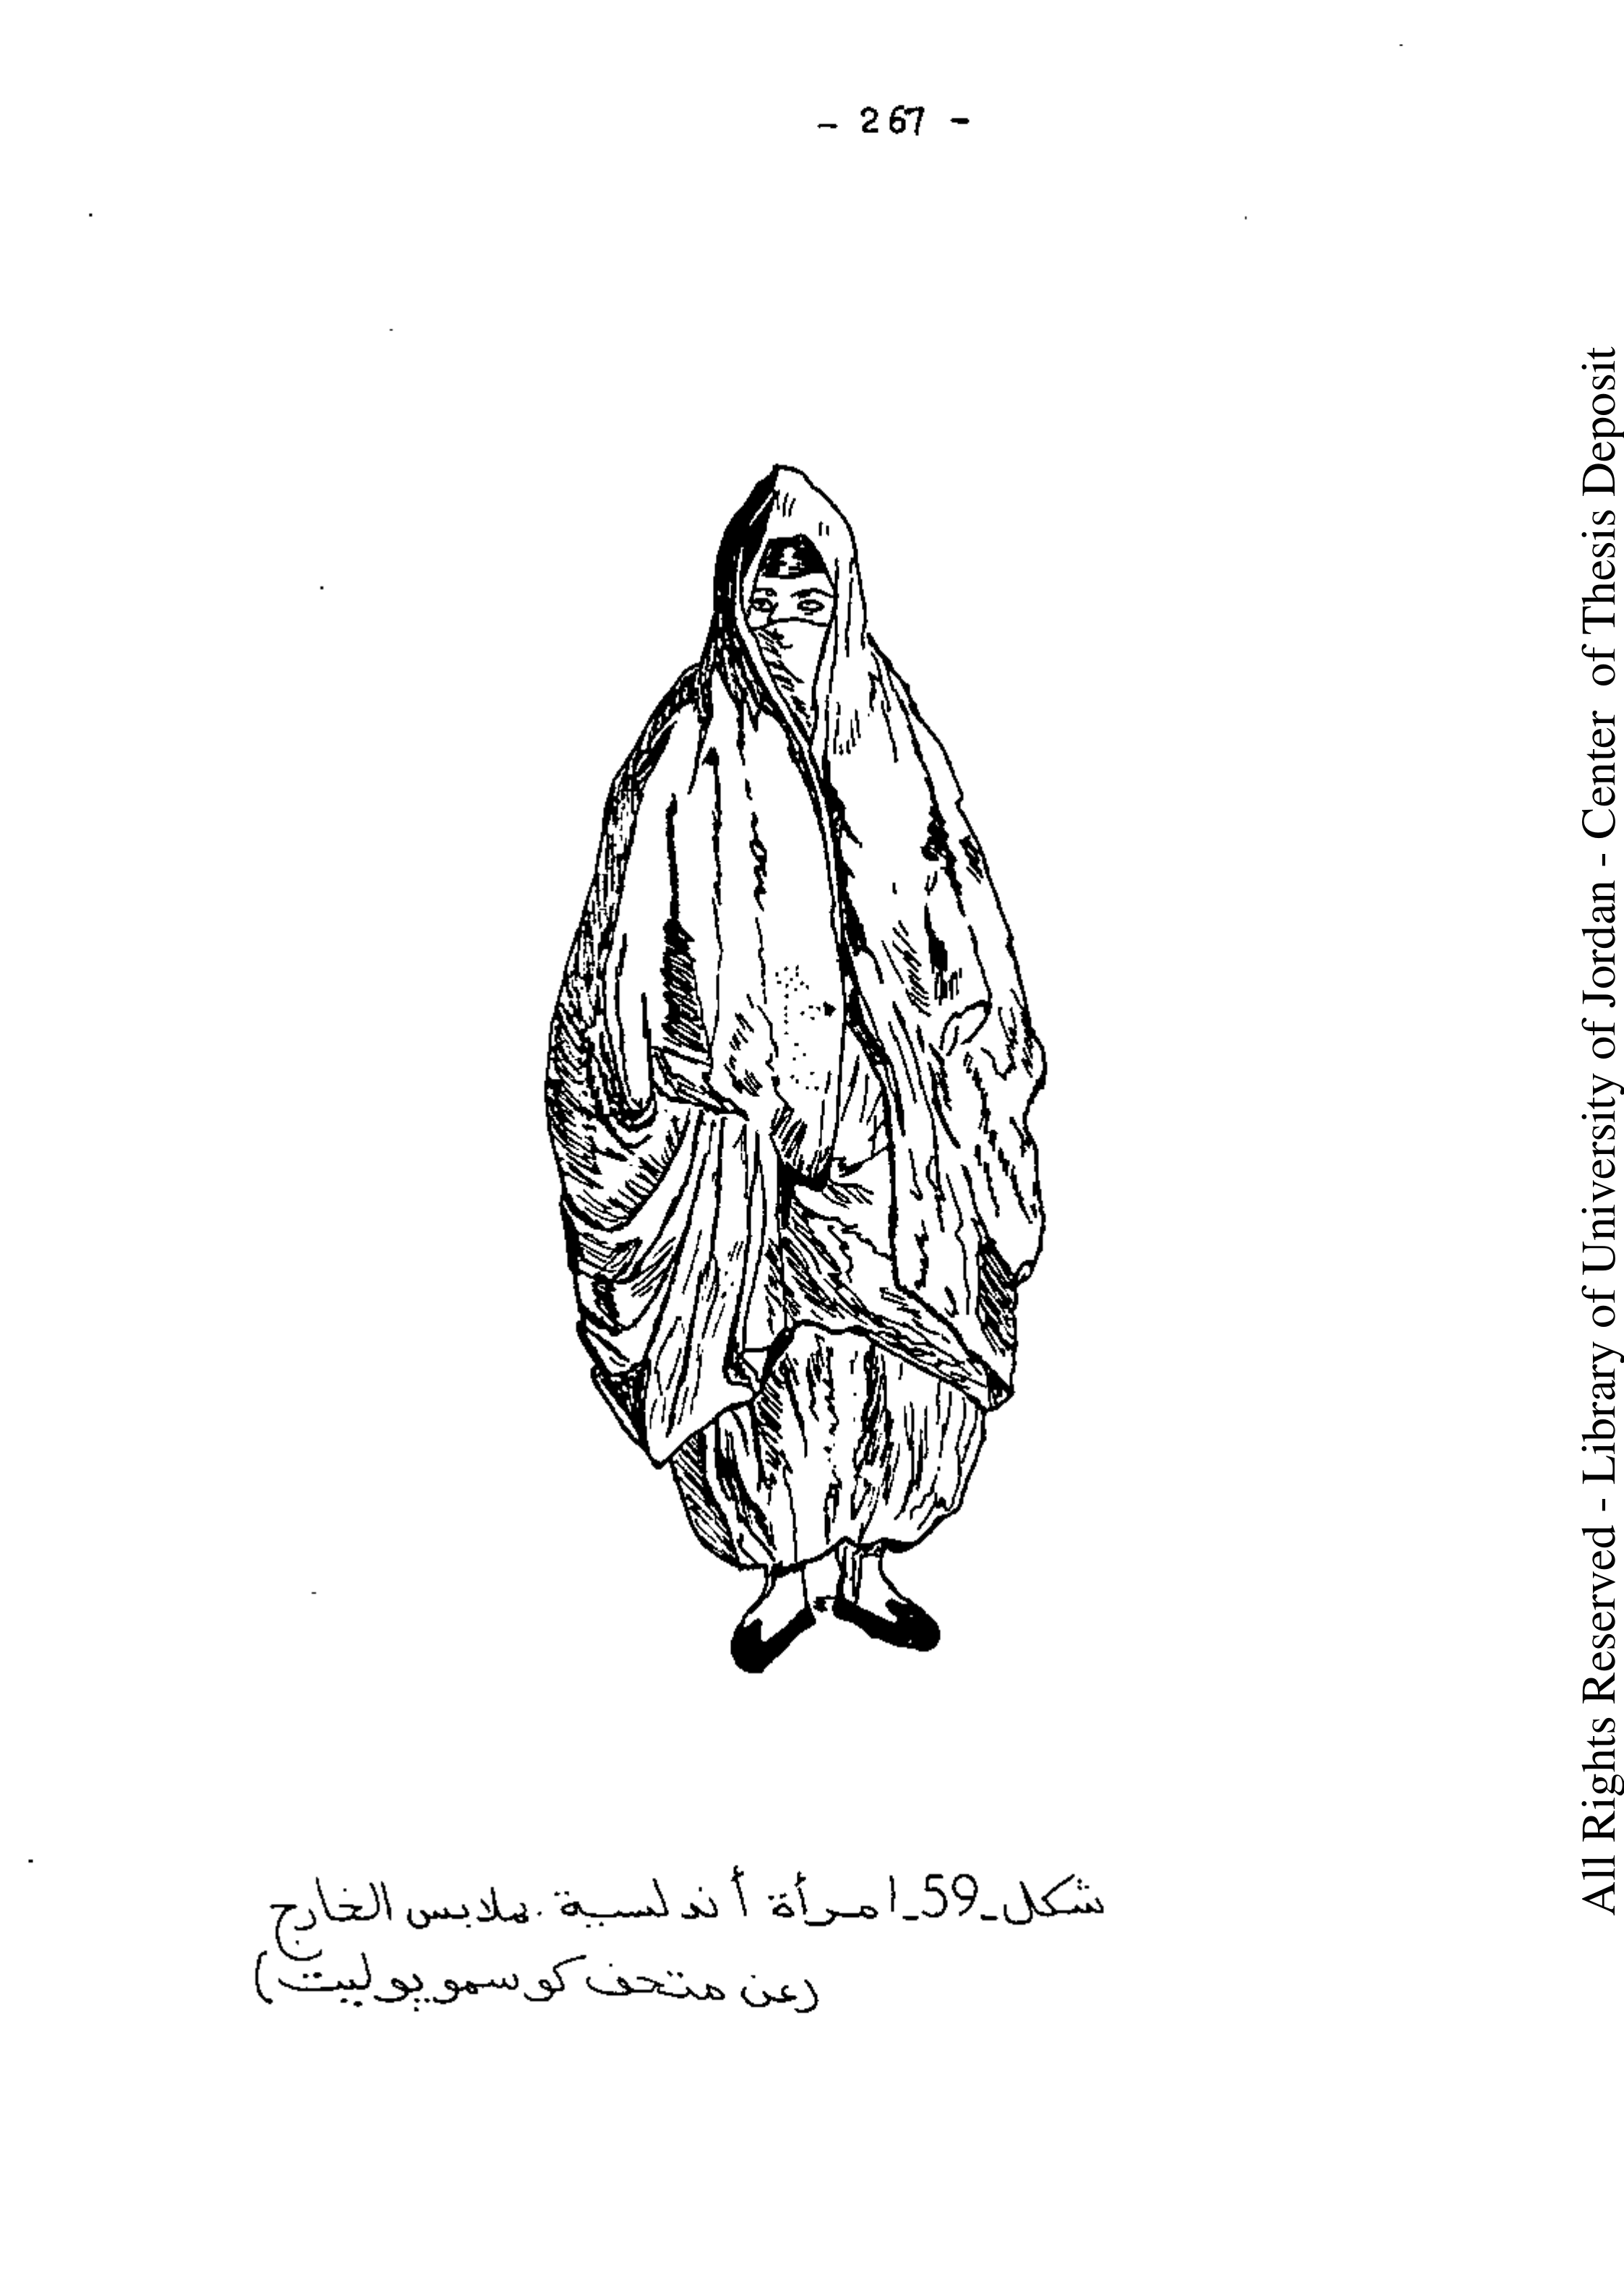 - 267 -
شكل_59_امرأة أندلسية. ملابس الخارج
(عن متحف كوسموبوليت)
All Rights Reserved - Library of University of Jordan - Center of Thesis Deposit